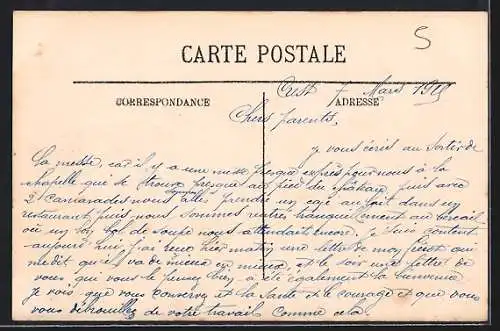 5
CARTE POSTALE
CORRESPONDANCE
ADRESSE
Crest 7 Mars
Chers parents,
je vous écris au sortir de
la messe, car il y a une messe presque exprès pour nous à la
chapelle qui se trouve presque au pied du château puis avec
2 camarades nous prendre un café au lait dans un
restaurant, puis nous sommes rentrés tranquillement au bercail
où un bol de soupe nous attendait encore. Je suis content
aujourd'hui, j'ai reçu hier matin une lettre de mon qui
me dit qu'il va de mieux en mieux, et le soir une lettre de
vous, qui vous le pensez bien, a été également la bienvenue
Je vois que vous conservez et la santé et le courage et que vous
vous débrouillez de votre travail comme cela